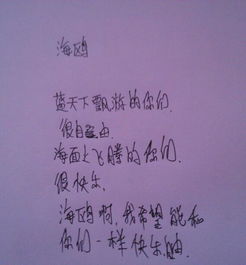 海鸥
蓝天下飘游的你们.
很自由.
海面上飞腾的你们.
很快乐.
海鸥啊,我希望能和
你们一样快乐.